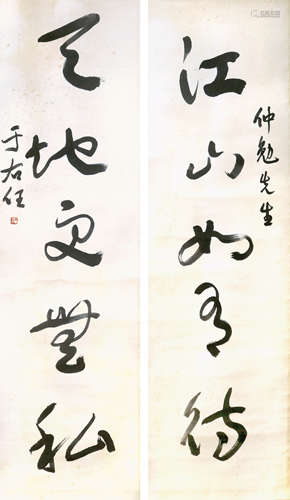 江山如有待
仲勉先生
天地更無私
于右任